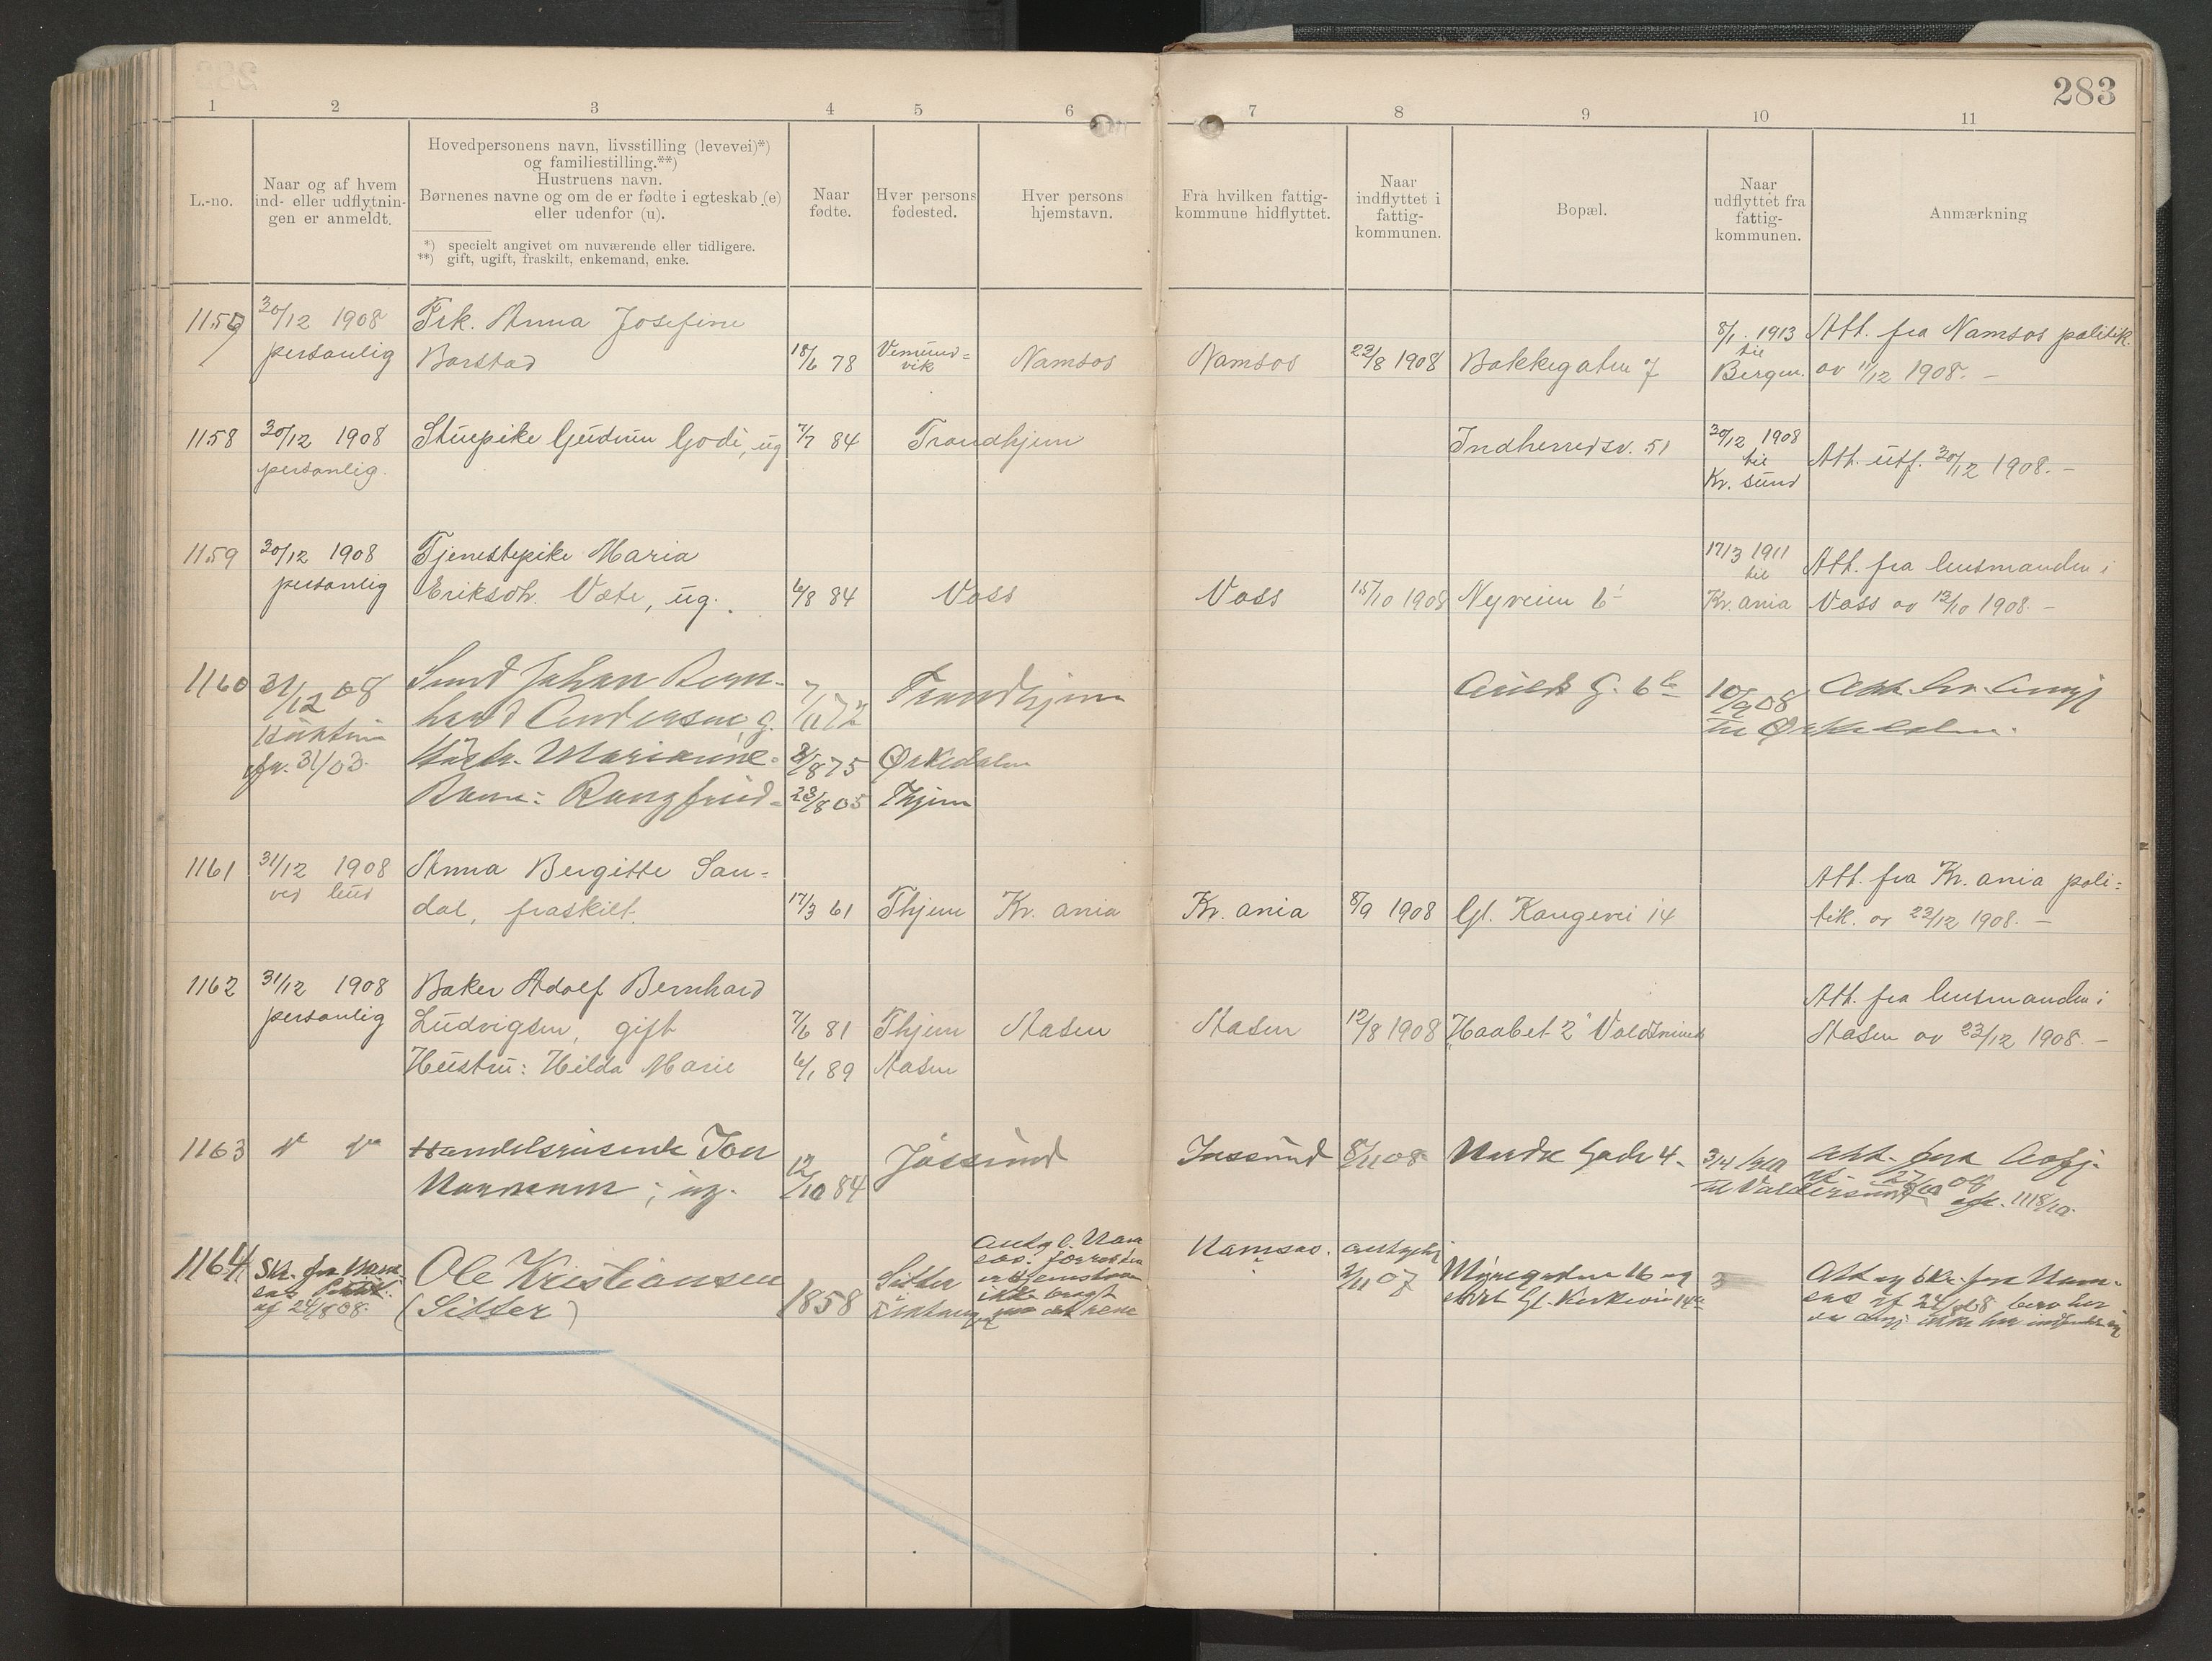 283
1 2 3 4 5 6 7 8 9 10 11
L.-no.
Naar og af hvem
ind- eller udflytnin-
gen er anmeldt.
Hovedpersonens navn, livsstilling (levevei)*)
og familiestilling.**)
Hustruens navn.
Børnenes navne og om de er fødte i egteskab (e)
eller udenfor (u).
*) specielt angivet om nuværende eller tidligere.
**) gift, ugift, fraskilt, enkemand, enke.
Naar
fødte.
Hver persons
fødested.
Hver persons
hjemstavn.
Fra hvilken fattig-
kommune hidflyttet.
Naar
indflyttet i
fattig-
kommunen.
Bopæl.
Naar
udflyttet fra
fattig-
kommunen.
Anmærkning
1157
20/12 1908
personlig
Frk. Anna Josefine
Barstad
18/6 78
Vemund=
vik
Namsos
Namsos
22/8 1908
Bakkegaten 7
8/1 1913
til
Bergen.
Att. fra Namsos politik.
av 11/12 1908. —
1158
30/12 1908
personlig.
Stuepike Gudrun Godi, ug
7/7 84
Trondhjem
Indherredsv. 51
30/12 1908
til
Kr. sund
Att. utf. 30/12 1908. —
1159
30/12 1908
personlig
Tjenestepike Maria
Eriksdtr. Væte, ug.
6/8 84
Voss
Voss
15/10 1908
Nyveien 6
17/3 1911
til
Kr. ania
Att. fra lensmanden i
Voss av 12/10 1908. —
1160
31/12 08
31/03.
Smed Johan Bern-
hard Andersen, g.
Hustr. Marianne
Barn: Rangfrid
7/11 72
8/8 75
23/8 05
Trondhjem
Ørkedalen
Thjem
10/9 08
til Ørkedalen.
1161
31/12 1908
ved bud
Anna Bergitte San=
dal, fraskilt.
17/3 61
Thjem
Kr. ania
Kr. ania
8/9 1908
Gl. Kongevei 14
Att. fra Kr. ania poli=
tik. av 22/12 1908. —
1162
31/12 1908
personlig
Baker Adolf Bernhard
Ludvigsen, gift
Hustru: Hilda Marie
7/6 81
6/1 89
Thjem
Aasen
Aasen
Aasen
12/8 1908
"Haabet 2"
Att. fra lensmanden i
Aasen av 23/12 1908. —
1163
Handelsreisende Jon
ug.
12/10 84
Jøssund
Jøssund
8/11 08
Nedre Gade 4
3/4
til Valdersund
Att. fra
1164
Skr. fra Nam-
sos
af 24/8 08.
Ole Kristiansen
(Sitter)
1858
Sitter
i
Namsos.
2/11 07
Gl. Kirkevei 14
Att og Skr. fra Nam-
sos af 24/8 08